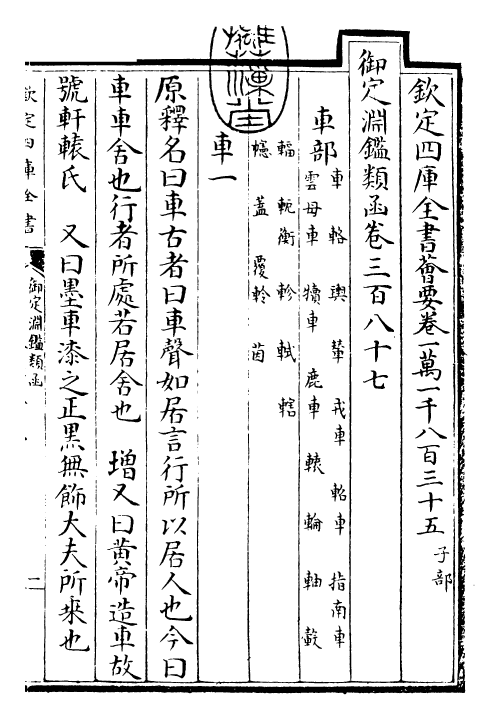 欽定四庫全書薈要卷一萬一千八百三十五 子部
御定淵鑑類函卷三百八十七
車部 車 輅 輿 輦 戎車 軺車 指南車
雲母車 犢車 鹿車 轅 輪 軸 轂
輻 軛衡 軫 軾 轄
幰 蓋 覆軨 茵
車一
原釋名曰車古者曰車聲如居言行所以居人也今曰
車車舍也行者所處若居舍也 増又曰黄帝造車故
號軒轅氏 又曰墨車漆之正黒無飾大夫所乗也
欽定四庫全書
御定淵鑑類函
二